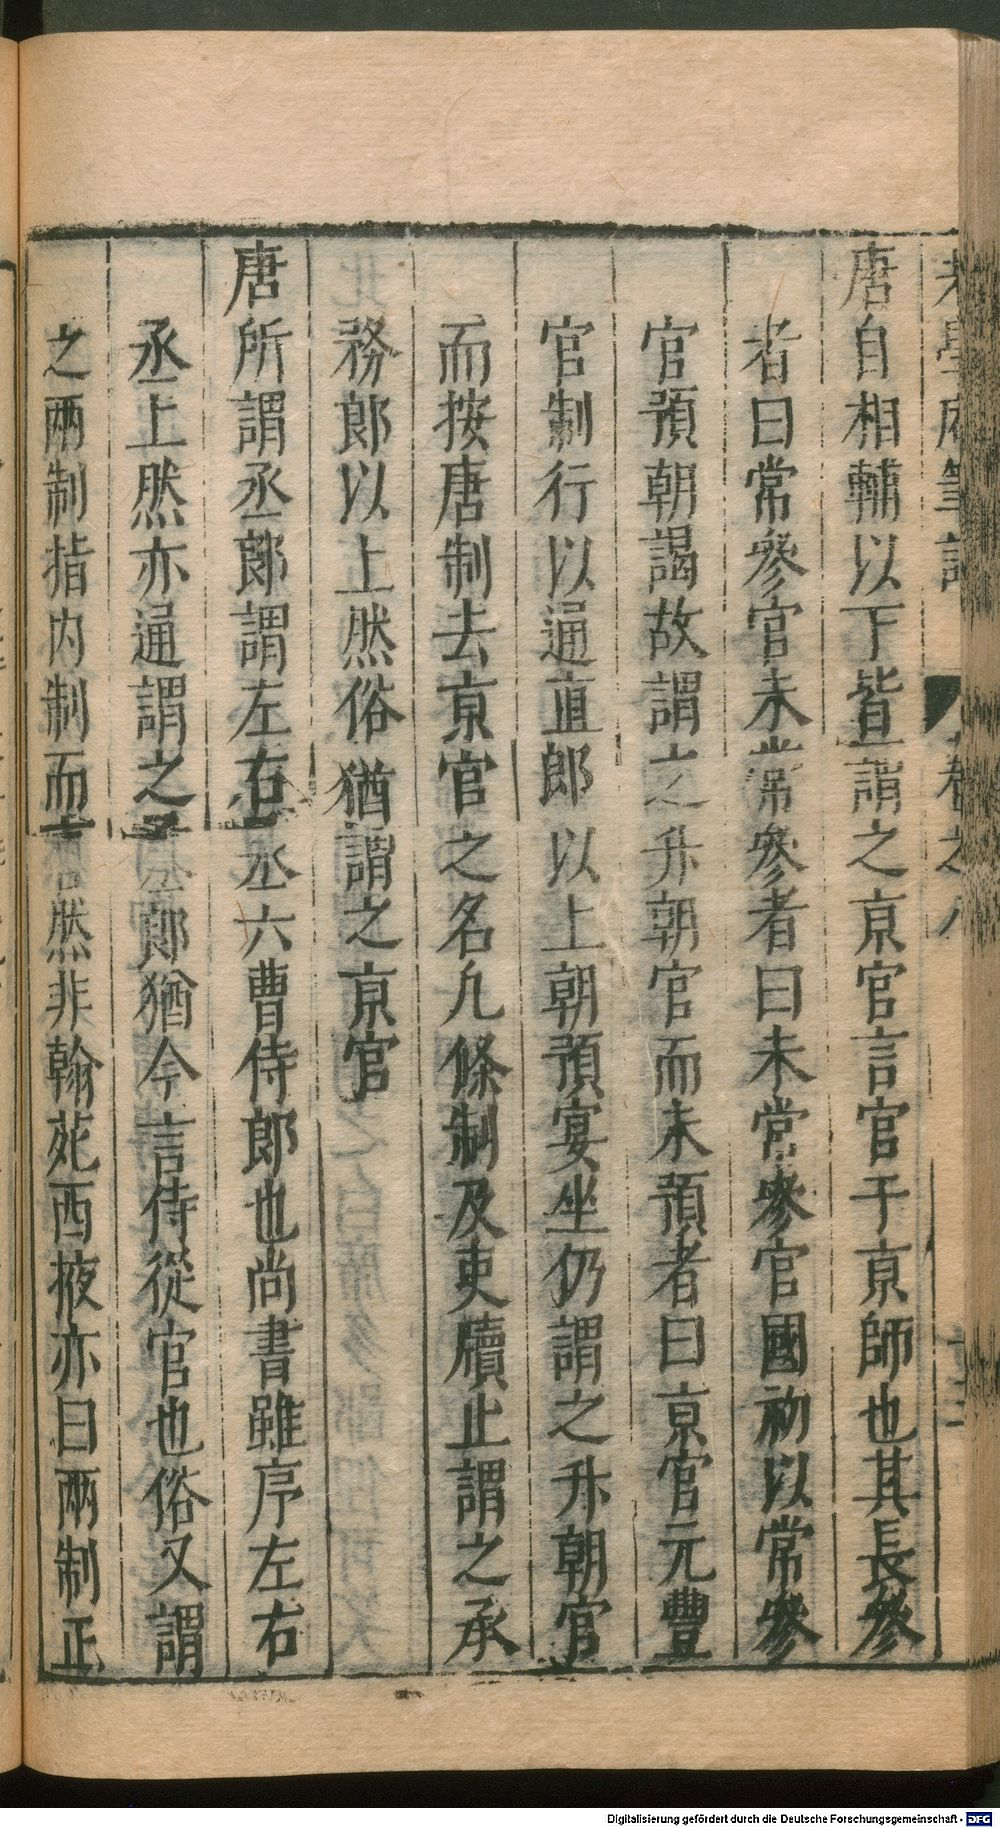 老學庵筆記 卷之八
唐自相輔以下皆謂之京官言官于京師也其長參
者曰常參官未常參者曰未常參官國初以常參
官預朝謁故謂之升朝官而未預者曰京官元豐
官制行以通直郎以上朝預宴坐仍謂之升朝官
而按唐制去京官之名凢條制及吏牘止謂之承
務郎以上然俗猶謂之京官
唐所謂丞郎謂左右丞六曹侍郎也尚書雖序左右
丞上然亦通謂之丞郎猶今言侍從官也俗又謂
之兩制指内制而言然非翰苑西掖亦曰兩制正
Digitalisierung gefördert durch die Deutsche Forschungsgemeinschaft - DFG